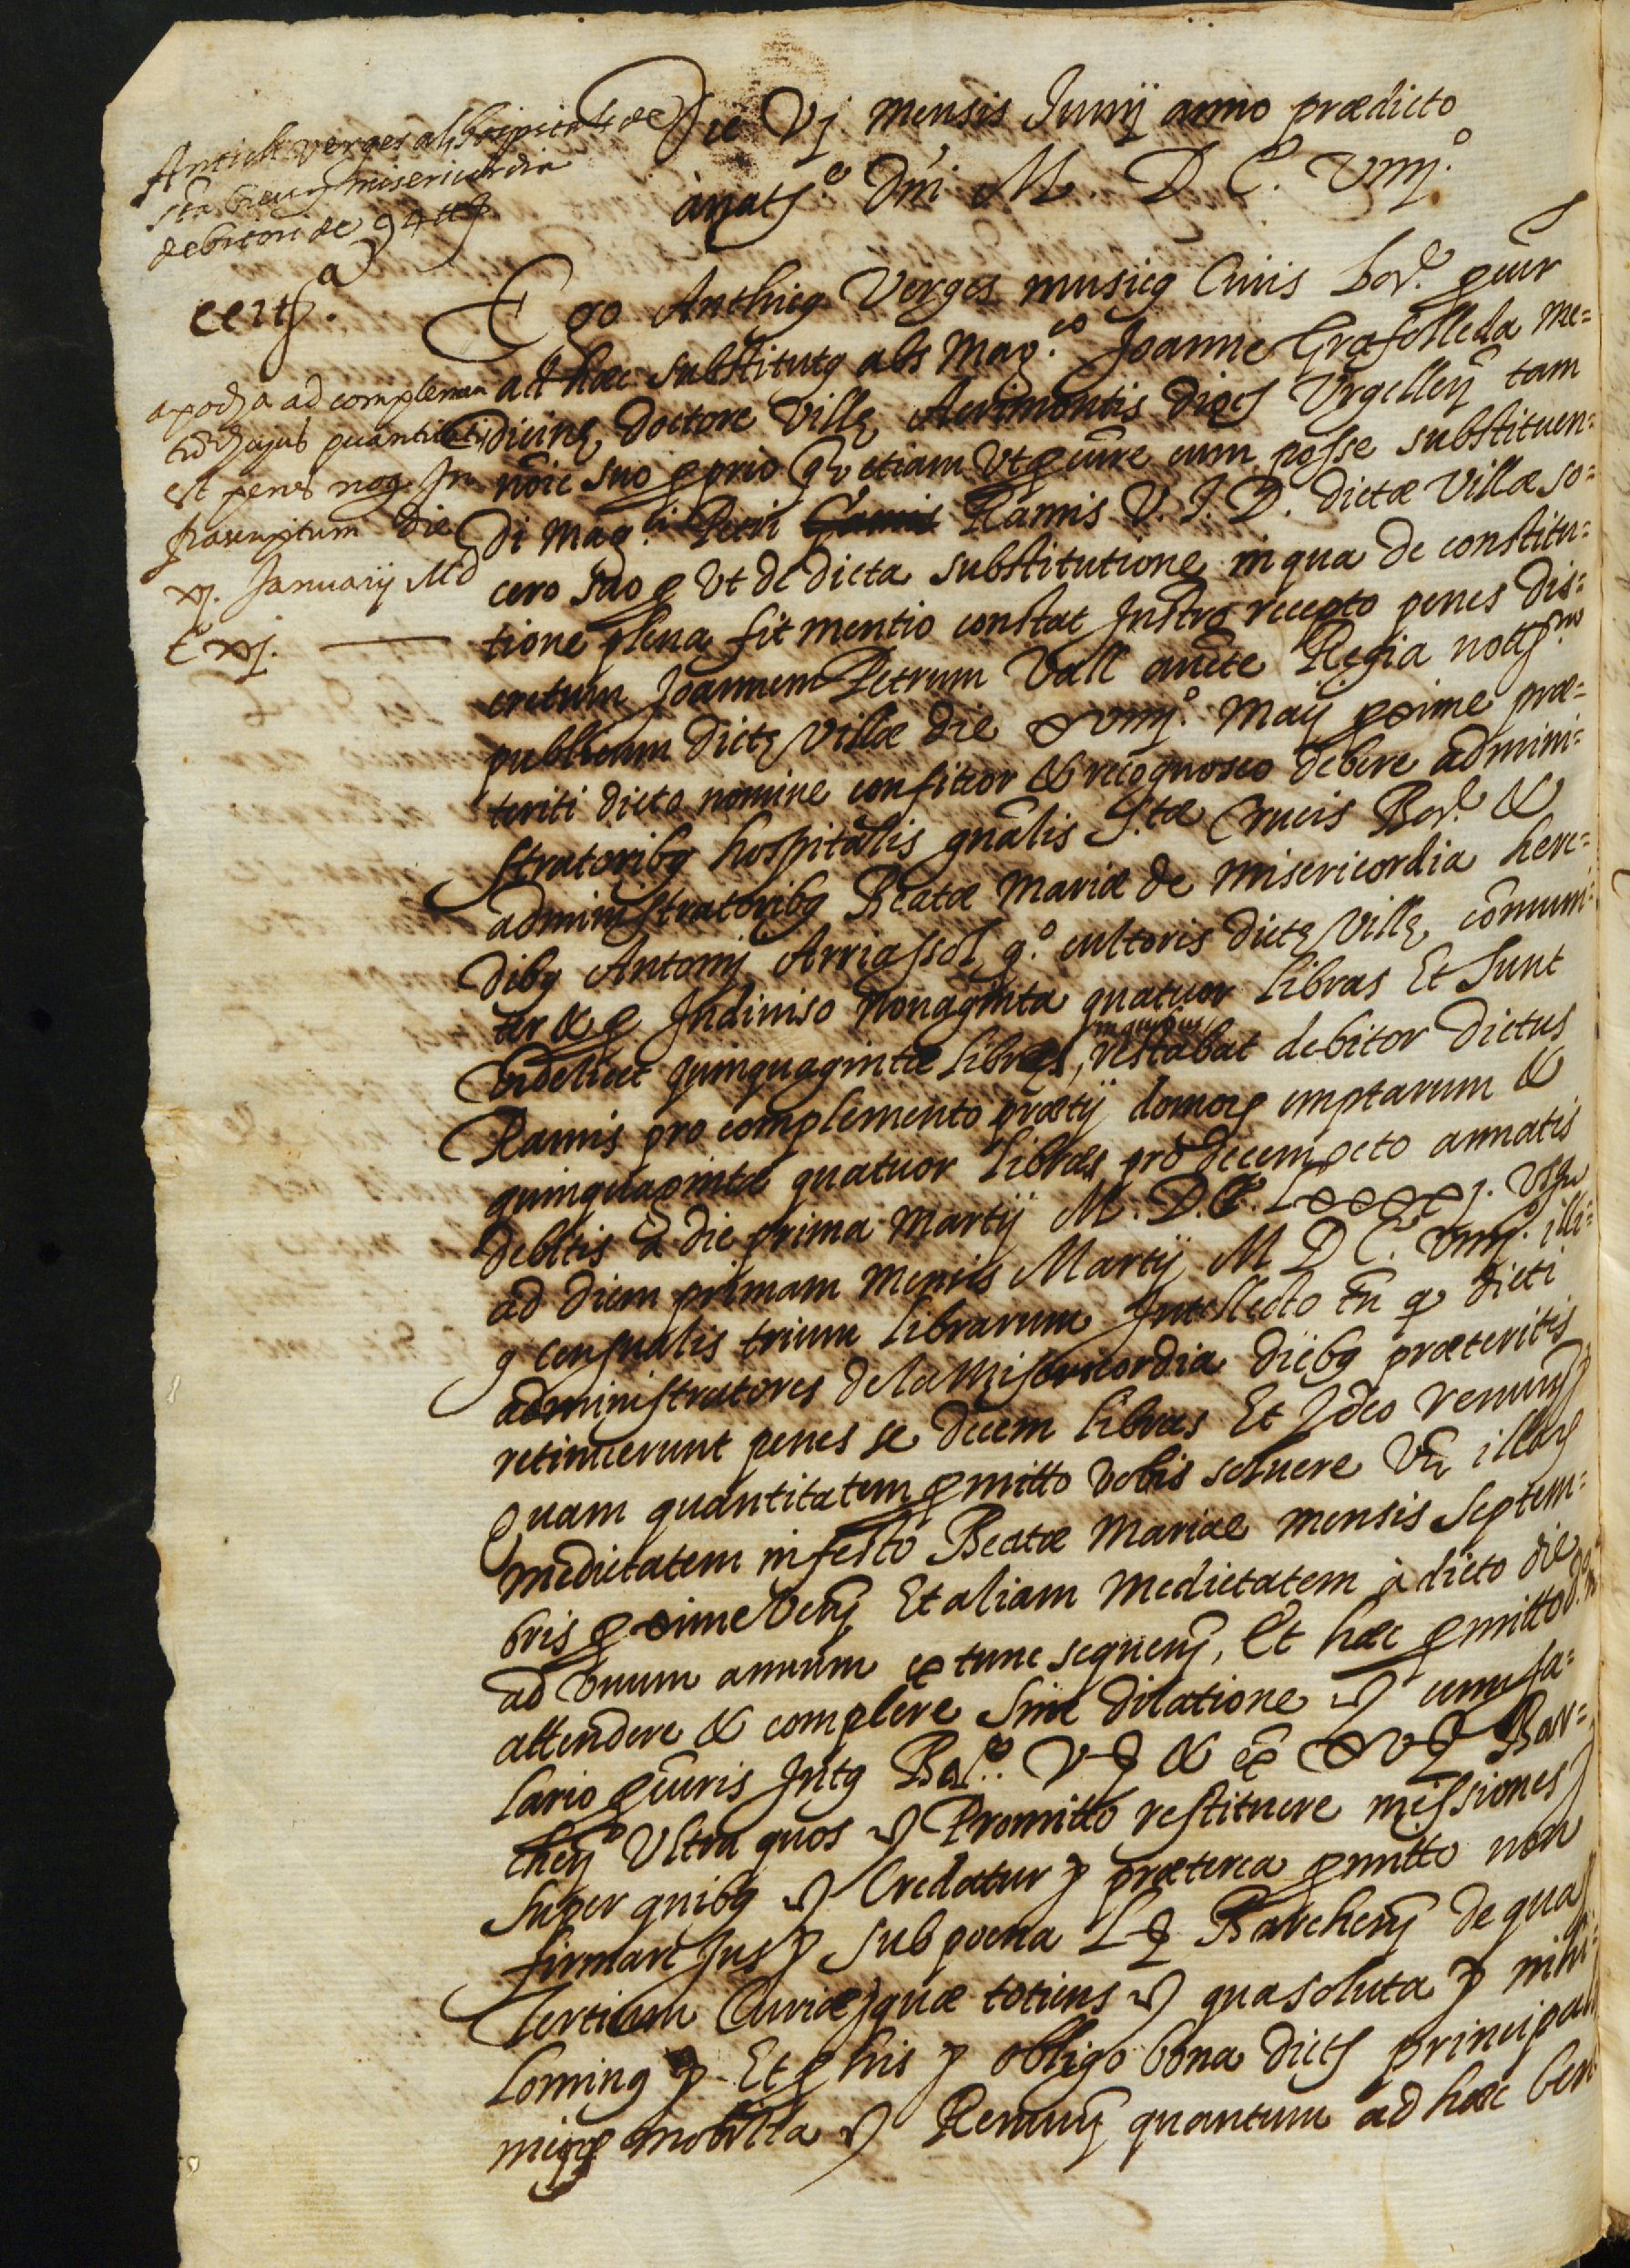 Die Vj mensis Junij anno prædicto
à natte Dni M. D C. Viiij.º
Antich verges als hospitals de
sta creu y misericordia
debitori de 94 ll
certª.
apocha ad complemen
tu hujus quantitatis
est penes nos In
franscriptum die
xj. Januarij MD
C xj.
Ego Anthicꝰ Verges musicꝰ Civis bar.e pcur
ad hæc substitutꝰ abs Mag.co Joanne Grasolleda me=
dicinę doctore Villę Acrimontis dioces Urgelleñ tam
noie suo pprio qᵃ etiam Ut pcure cum posse substituen=
di Mag.ci Petri Ramis V. J. D. dictæ Villæ so=
cero suo ꝑ Ut de dicta substitutione in qua de constitu=
tione plena fit mentio constat Instro recepto penes dis=
cretum Joannem Petrum Vall aucte Regia nott.m
publicum dictę Villæ die xviiij.º Maij pxime præ=
teriti dicto nomine confiteor & recognosco debere admini=
stratoribꝰ hospitalis gñalis S.tæ Crucis Bar.e &
administratoribꝰ Beatæ Mariæ de misericordia here=
dibꝰ Antonij Arriassol qº. cultoris dictę Villę comuni=
ter & ꝑ Indiviso nonaginta quatuor libras Et sunt
Videlicet quinquaginta libræ, in quibus restabat debitor dictus
Ramis pro complemento prætij domorꝝ emptarum &
quinquaginta quatuor libræ pro decem octo annatis
debitis à die prima Martij M. D. Lxxxxj. Usqꝫ
ad diem primam mensis Martij M D C. Viiij.º illi=
ꝰ censualis trium librarum Intellecto tñ qᵈ dicti
administratores de la Misericordia diebꝰ præteritis
retinuerunt penes se decem libras Et Ideo renunꝭ
Quam quantitatem pmitto vobis solvere Vñ illarꝝ
medietatem in festo Beatæ Mariæ mensis Septem=
bris pxime Veñ Et aliam medietatem à dicto die
ad unum annum ex tunc sequenꝭ. Et hæc pmitto
attendere & complere sine dilatione & cum sa=
lario pcuris Intꝰ Bar.e V ꝭ & ex XV ꝭ Bar=
cheñ Ultra quos & Promitto restituere missiones
super quibꝰ & Credatur & præterea pmitto non
firmare Jus & sub poena L ꝭ Barcheñ de qua
tertium Curiæ quæ totiens & qua soluta & nihi=
lominꝰ & Et ꝓ his & obligo bona dictꝭ principaliꝭ
meiqꝫ mobilia & Renunꝭ quantum ad hæc ben